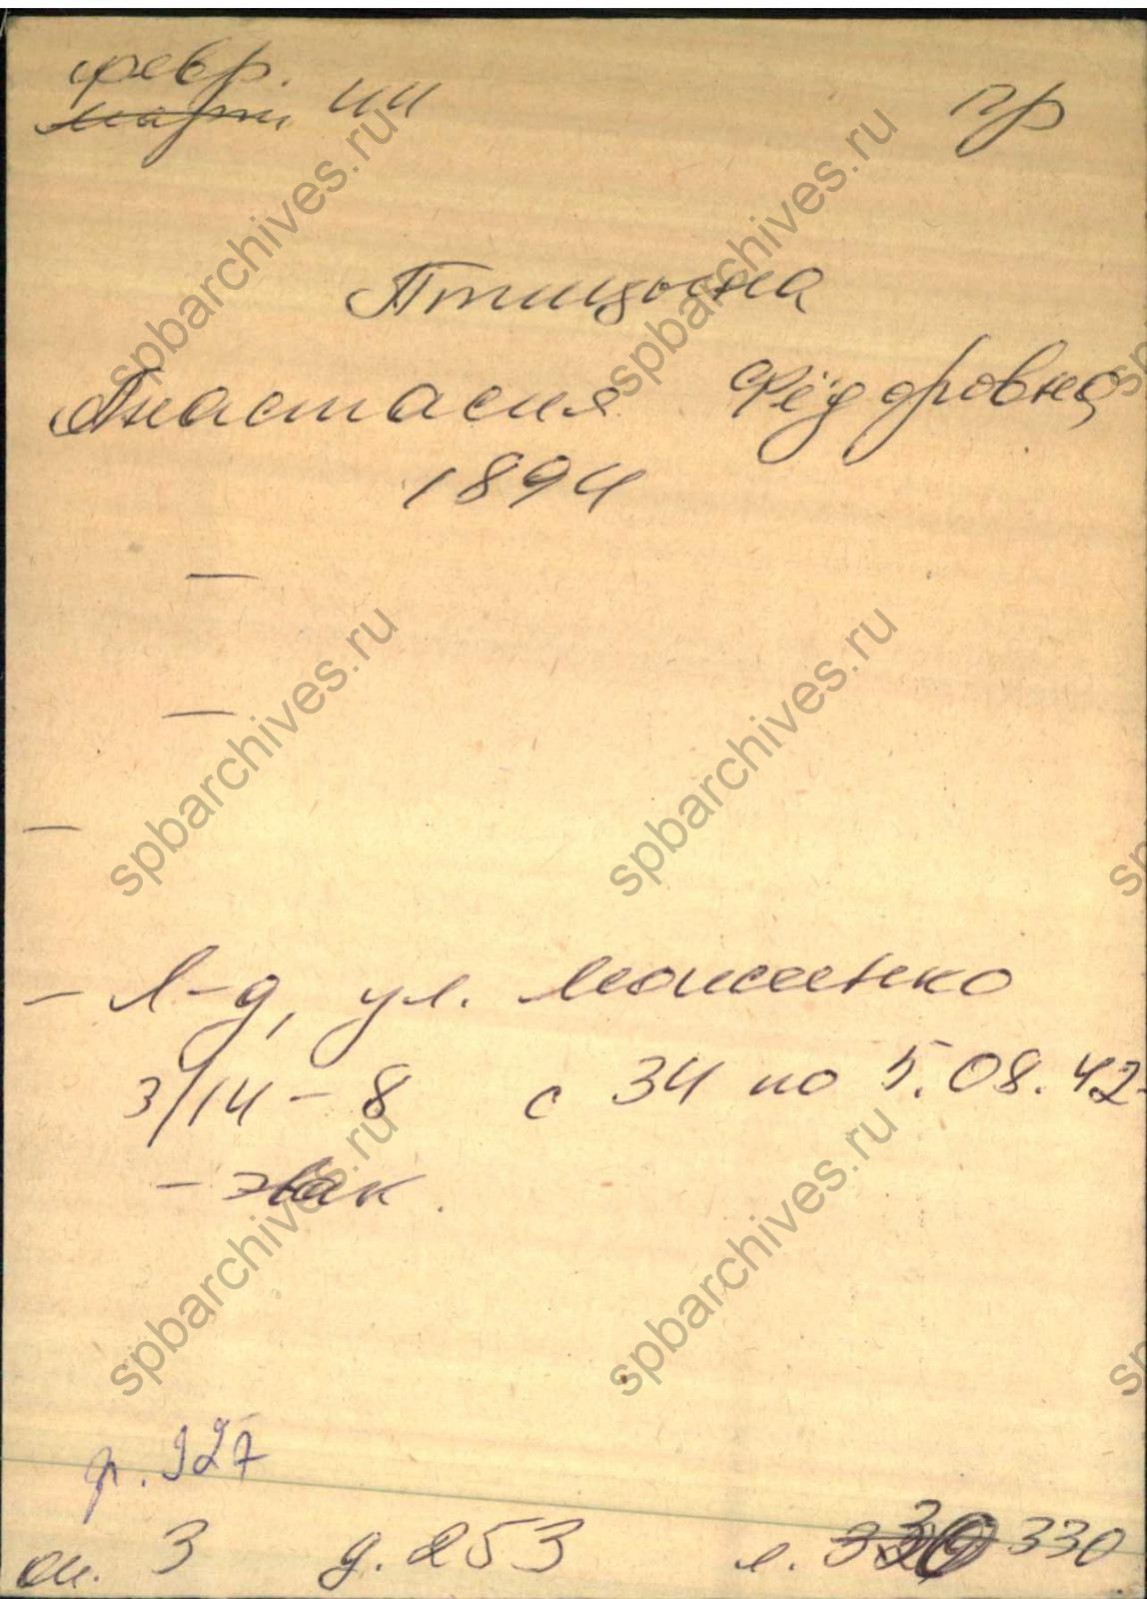 февр.
марти 44 пр
Птицына
Анастасия Фёдоровна
1894
—
—
—
– Л-д, ул.
3/14 – 8 с 34 по 5.08.42
– эвак.
р. 327
оп. 3 д. 253 л. 330
spbarchives.ru